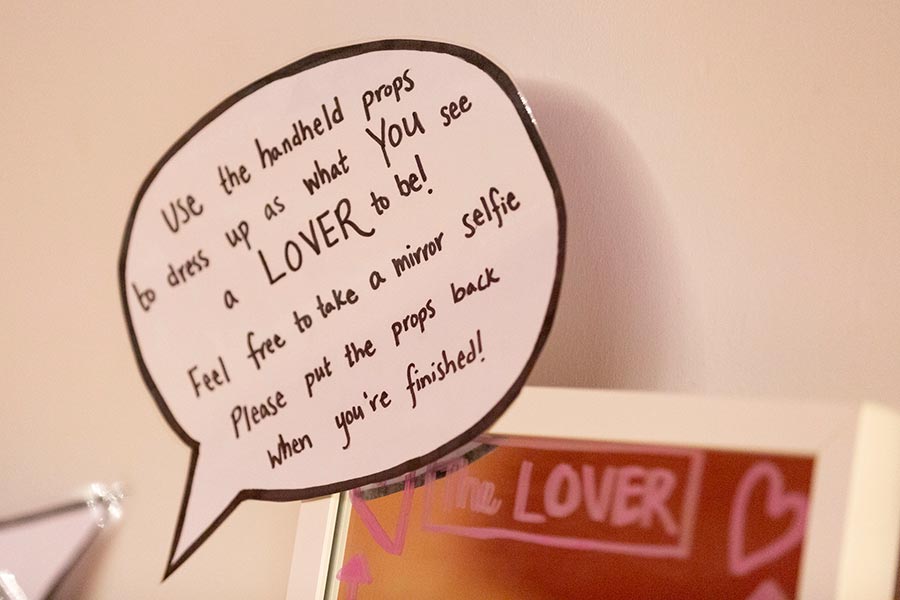 Use the handheld props
to dress up as what YOU see
a LOVER to be!
Feel free to take a mirror selfie
Please put the props back
when you're finished!
The LOVER